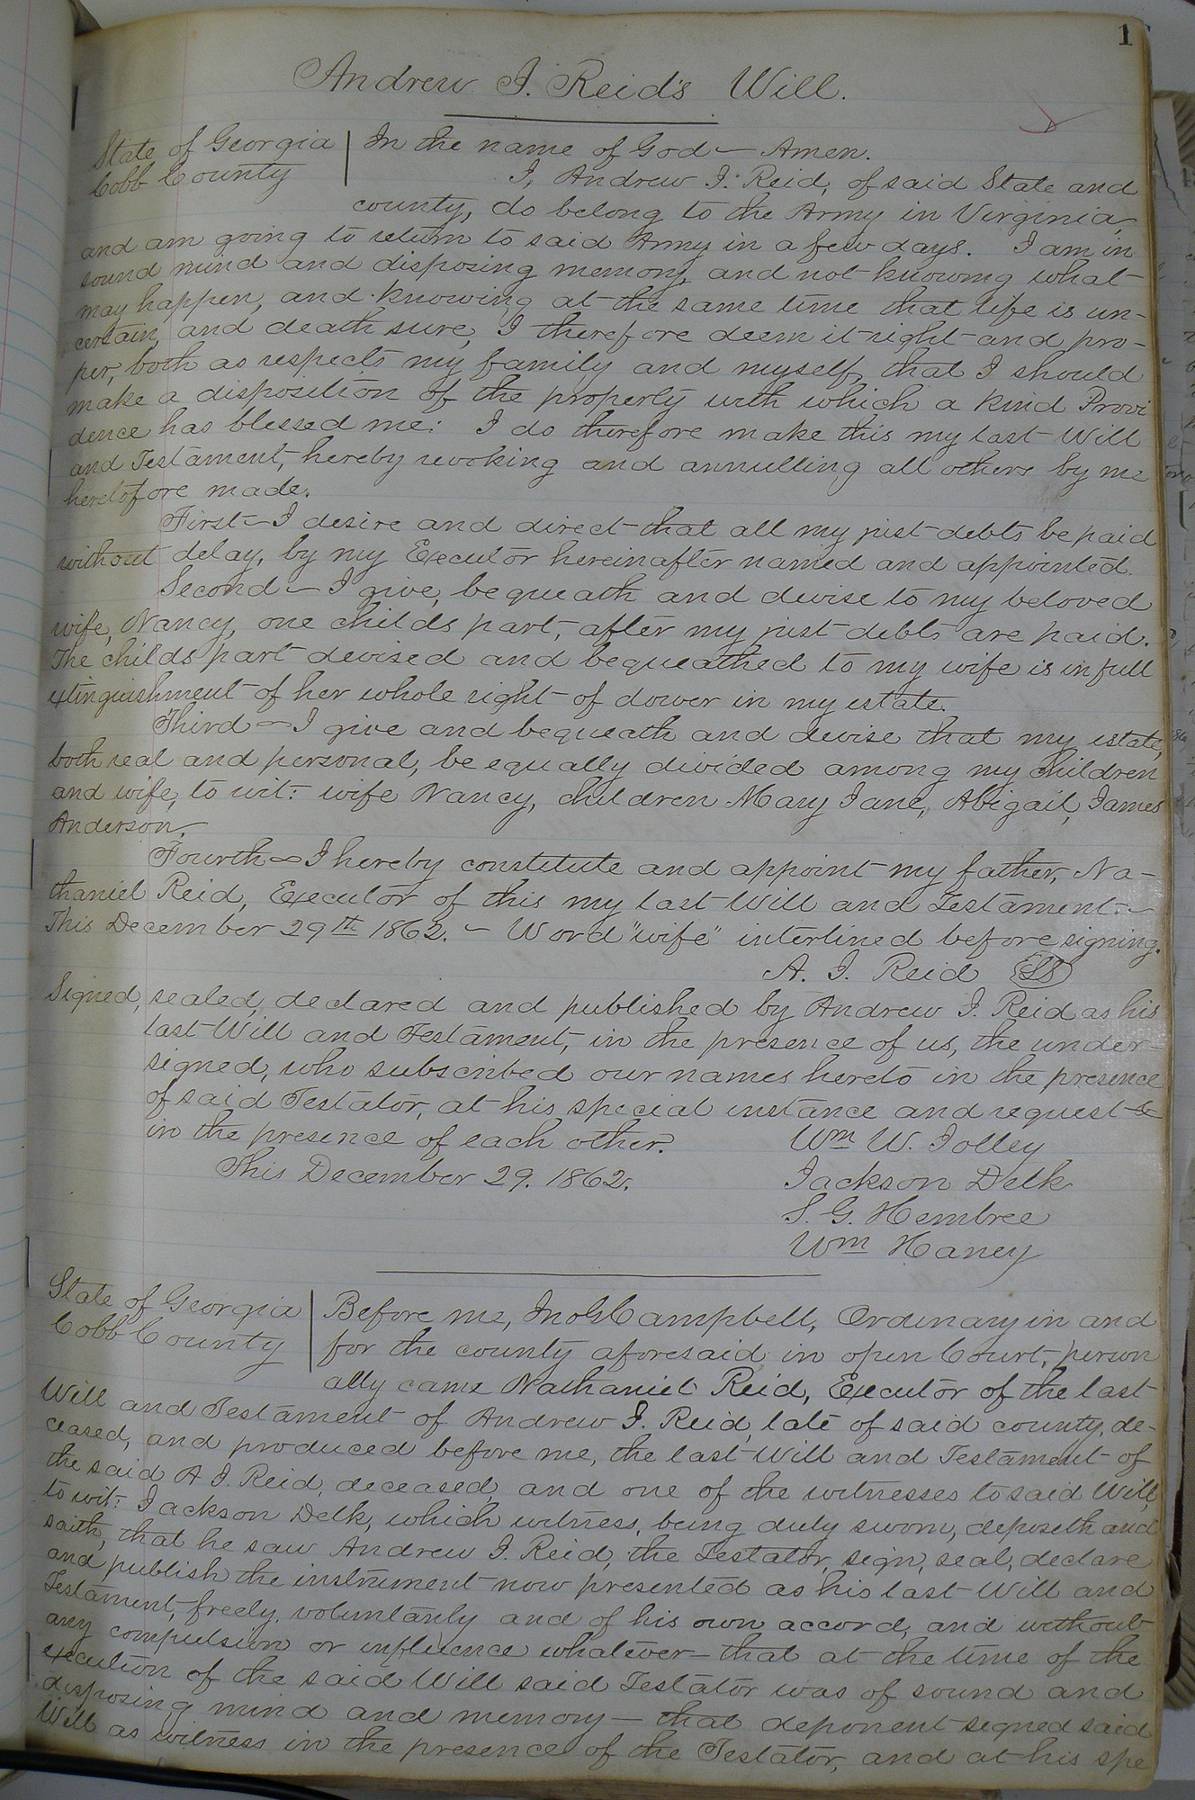 1
Andrew J. Reid's Will.
State of Georgia | In the name of God – Amen.
Cobb County | I, Andrew J. Reid, of said State and
county, do belong to the Army in Virginia,
and am going to return to said Army in a few days. I am in
sound mind and disposing memory, and not knowing what
may happen, and knowing at the same time that life is un-
certain, and death sure, I therefore deem it right and pro-
per, both as respects my family and myself, that I should
make a disposition of the property with which a kind Provi
dence has blessed me: I do therefore make this my last Will
and Testament, hereby revoking and annulling all others by me
heretofore made.
First – I desire and direct that all my just debts be paid
without delay, by my Executor hereinafter named and appointed.
Second – I give, bequeath and devise to my beloved
wife, Nancy, one childs part, after my just debts are paid.
The childs part devised and bequeathed to my wife is in full
extinguishment of her whole right of dower in my estate.
Third – I give and bequeath and devise that my estate,
both real and personal, be equally divided among my children
and wife, to wit: wife Nancy, children Mary Jane, Abigail, James
Anderson.
Fourth – I hereby constitute and appoint my father, Na-
thaniel Reid, Executor of this my last Will and Testament. –
This December 29th 1862. – Word "wife" interlined before signing.
A. J. Reid (LS)
Signed, sealed, declared and published by Andrew J. Reid as his
last Will and Testament, in the presence of us, the under-
signed, who subscribed our names hereto in the presence
of said Testator, at his special instance and request &
in the presence of each other. Wm W. Jolley
This December 29. 1862. Jackson Delk
S. G. Hembree
Wm Haney
State of Georgia | Before me, Jno G Campbell, Ordinary in and
Cobb County | for the county aforesaid in open Court, person
ally came Nathaniel Reid, Executor of the last
Will and Testament of Andrew J. Reid, late of said county, de-
ceased, and produced before me, the last Will and Testament of
the said A J. Reid, deceased, and one of the witnesses to said Will,
to wit: Jackson Delk, which witness, being duly sworn, deposeth and
saith, that he saw Andrew J. Reid, the Testator, sign, seal, declare
and publish the instrument now presented as his last Will and
Testament, freely, voluntarily and of his own accord, and without
any compulsion or influence whatever – that at the time of the
execution of the said Will said Testator was of sound and
disposing mind and memory – that deponent signed said
Will as witness in the presence of the Testator, and at his spe